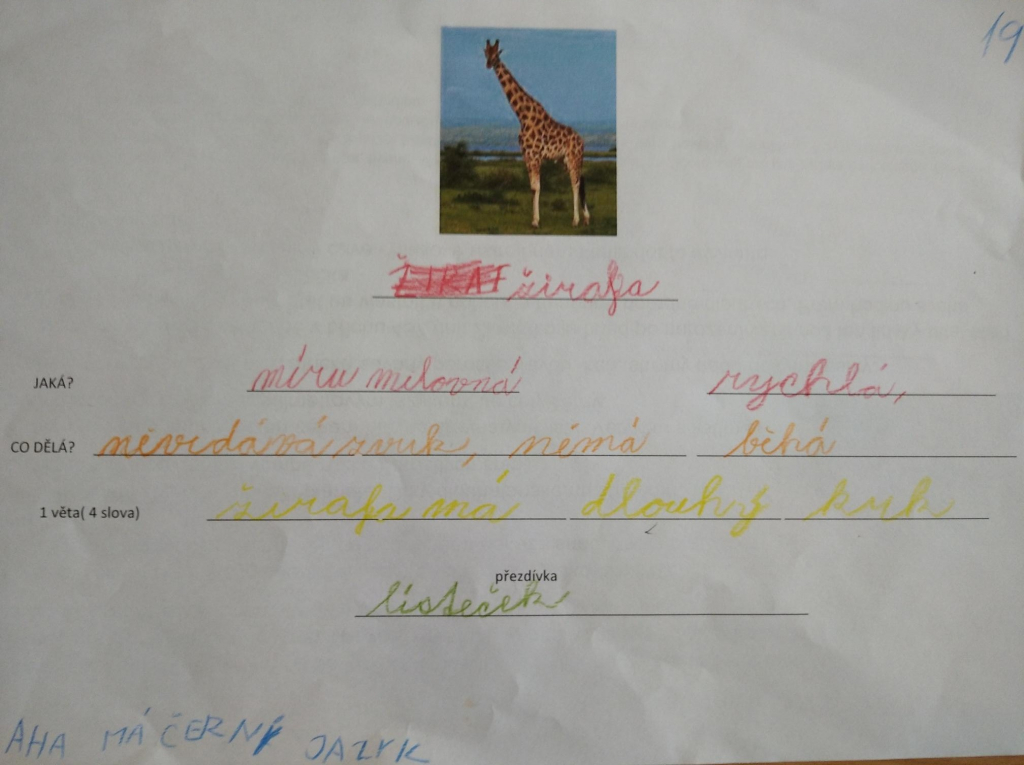 19
ŽIRAF žirafa
JAKÁ? míru milovná rychlá,
CO DĚLÁ? něvidává zvuk, němá běhá
1 věta( 4 slova) žirafa má dlouhý krk
přezdívka
lísteček
AHA MÁ ČERNÝ JAZYK